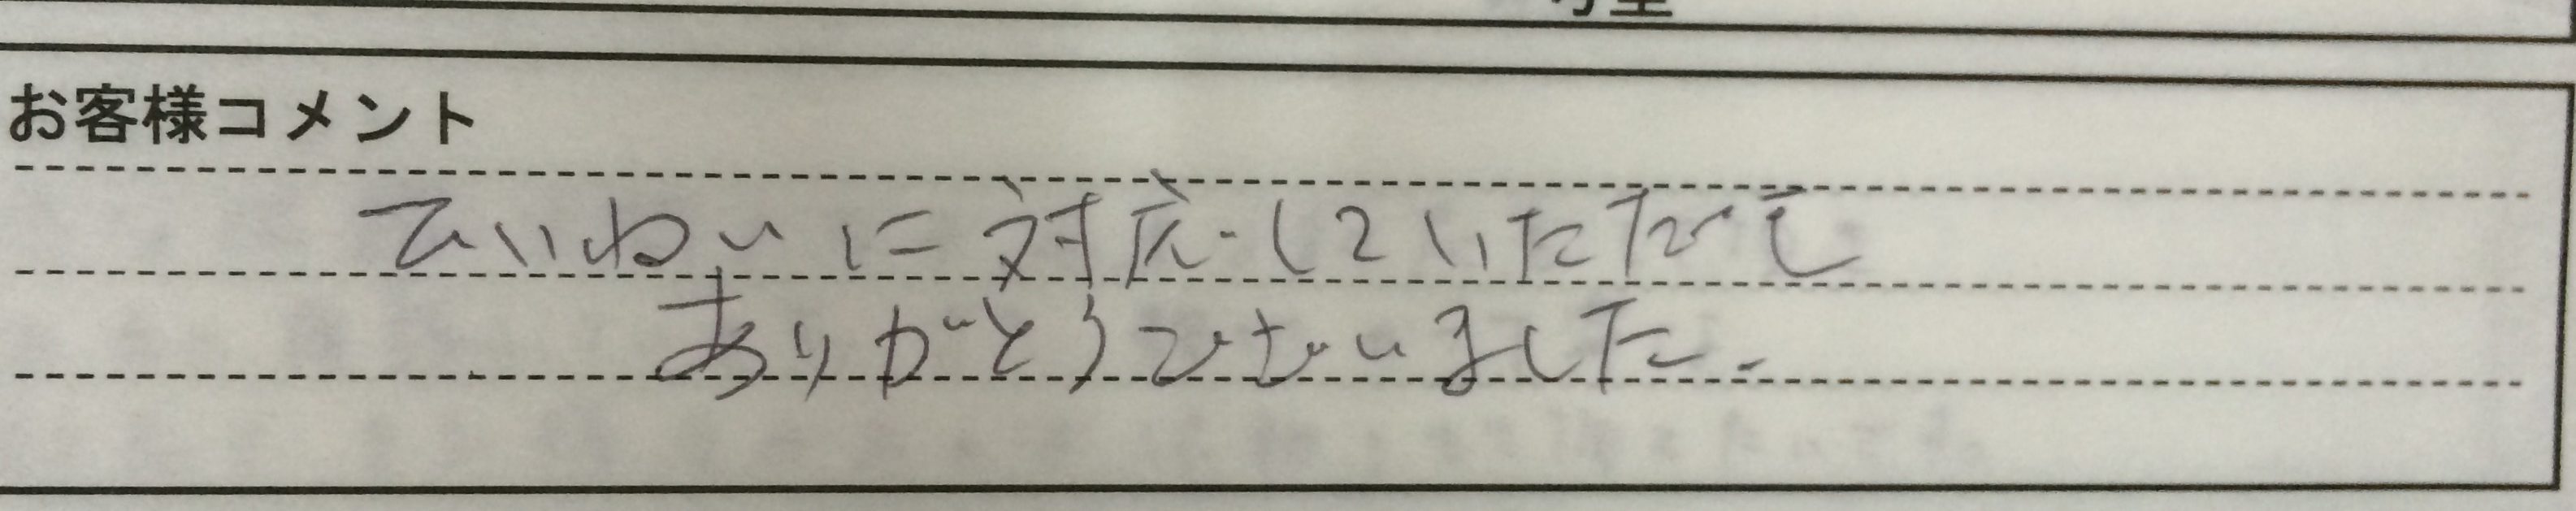 お客様コメント
ていねいに対応していただきて
ありがとうございました.